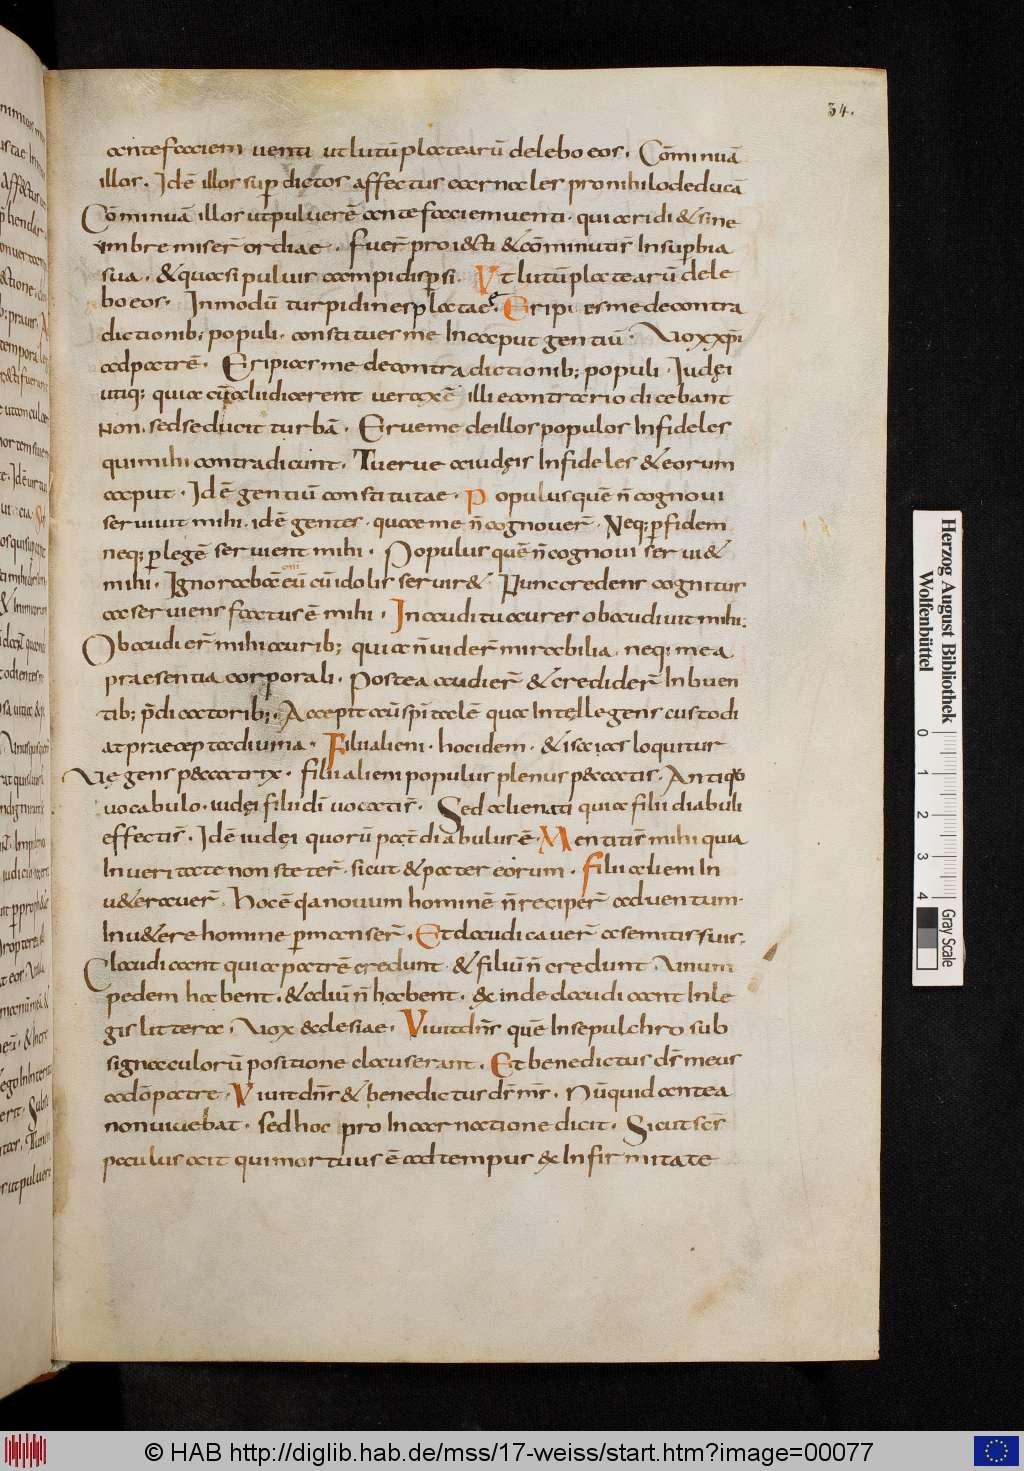 34.
ante faciem venti ut lutū platearū delebo eos. Cōminuā
illos. Idē illos sup dictos affectus carnales pro nihilo deducā
Cōminuā illos ut pulverē ante faciem venti. quia ridi & sine
imbre miser̄ ordiae. Fuer̄ proiecti & cōminuti s̄ In sup̱bia
sua. & quasi pulvis campi disp̱si. Ut lutū platearū dele
bo eos. In modū turpidines platae. Eripies me de contra
dictionib; populi. constitues me In caput gentiū. Vox xp̄i
ad patrē. Eripias me de contradictionib; populi. Iudęi
utiq; quia cū audierent veracē illi e contrario dicebant
Non. sed seducit turbā. Erue me de illos populos Infideles
qui mihi contradicunt. Tuerue a iudęis Infideles & eorum
caput. Id ē gentiū constitutae. Populus quē n̄ cognovi
servivit mihi. id ē gentes. quae me n̄ cognover̄. Neq; p̱ fidem
neq; p̱ legē servient mihi. Populus quē n̄ cognovi servi&
mihi. Ignorabā eū cū idolis servir&. Nunc credens cognitus
ac serviens factus ē mihi. In auditu aures obaudivit mihi;
Obaudier̄ mihi aurib; quia n̄ vider̄ mirabilia. neq; mea
praesentia corporali. Postea audier̄ & credider̄ Inbuen
tib; p̄dicatorib;. Accepit cū sp̄i talē quae Intęllegens custodi
at praecepta divina. Filii alieni. hoc idem. & isaias loquitur
Vę gens p&catrix. filii alieni populus plenus p&catis. Antiquo
vocabulo. iudęi filii dī vocatis̄. Sed alienati quia filii diabuli
effectis̄. Idē iudęi quorū pat̄ diabulus ē. Mentitis̄ mihi quia
In veritate non steter̄. sicut & pater eorum. Filii alieni In
v&eraver̄. Hoc ē q̄a novum hominē n̄ reciper̄ adventum.
In v&ere homine p̱manser̄. Et claudicaver̄ a semitis suis.
Claudicant quia patrē credunt & filiū n̄ credunt. Unum
pedem habent. & aliū n̄ habent. & inde claudicant In le
gis littera. Vox ecclesiae. Vivit dn̄s quē In sepulchro sub
signaculorū positione clauserant. Et benedictus ds̄ meus
ac dō patre. Vivit dn̄s & benedictus ds̄ ms̄. Nūquid antea
non vivebat. sed hoc pro Incarnatione dicit. Sicut sc̄s
paulus ait qui mortuus ē ad tempus & Infirmitate
Herzog August Bibliothek
Wolfenbüttel
0 1 2 3 4
Gray Scale
© HAB http://diglib.hab.de/mss/17-weiss/start.htm?image=00077